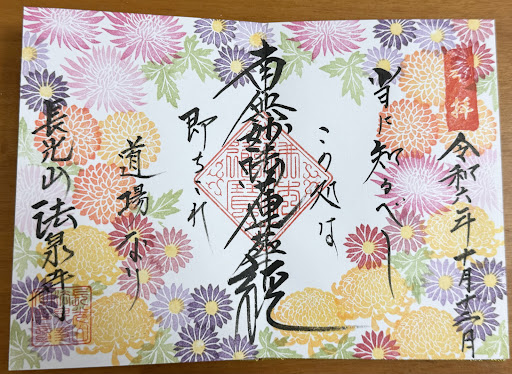 奉拝
令和六年十月
当に知るべし
この処は
南無妙法蓮華経
即ちこれ
道場なり
長光山 法泉寺